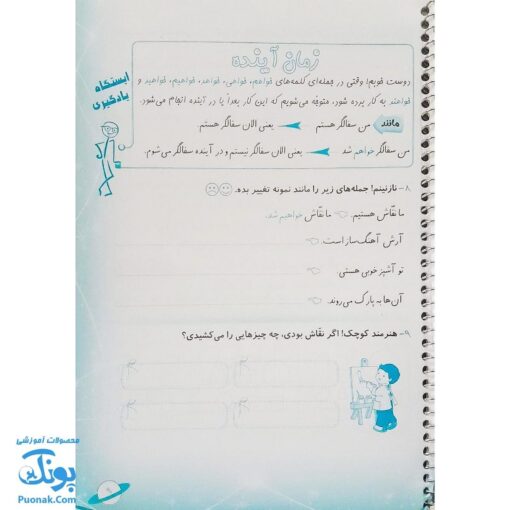 زمان آینده
ایستگاه
یادگیری
دوست خوبم! وقتی در جمله‌ای کلمه‌های خواهم، خواهی، خواهد، خواهیم، خواهید و
خواهند به کار برده شود، متوجّه می‌شویم که این کار بعداً یا در آینده انجام می‌شود.
مانند
من سفالگر هستم
یعنی الان سفالگر هستم.
من سفالگر خواهم شد
یعنی الان سفالگر نیستم و در آینده سفالگر می‌شوم.
۸- نازنینم! جمله‌های زیر را مانند نمونه تغییر بده.
ما نقّاش هستیم. ما نقّاش خواهیم شد.
آرش آهنگ‌ساز است.
تو آشپز خوبی هستی
آن‌ها به پارک می‌روند.
۹- هنرمند کوچک! اگر نقّاش بودی، چه چیزهایی را می‌کشیدی؟
محصولات آموزشی
پونک
Puonak.Com